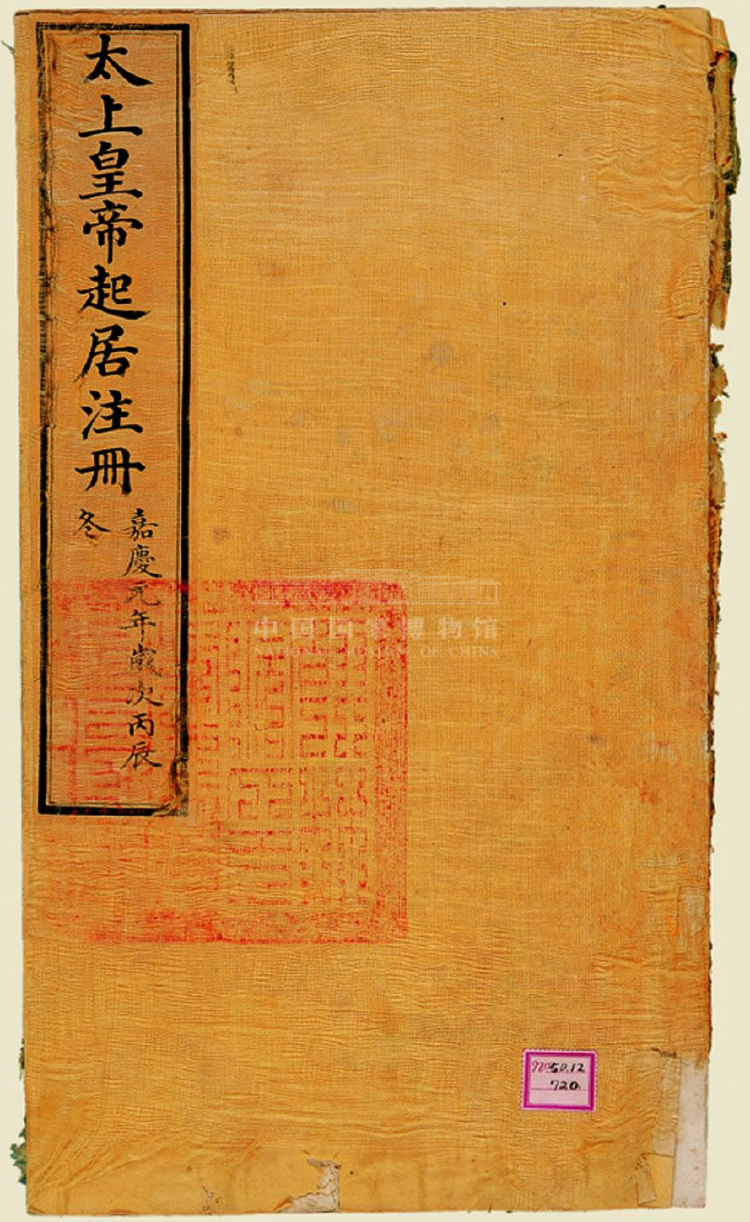 太上皇帝起居注冊
嘉慶元年歲次丙辰
冬
中国国家博物馆
NATIONAL MUSEUM OF CHINA
50.12
720